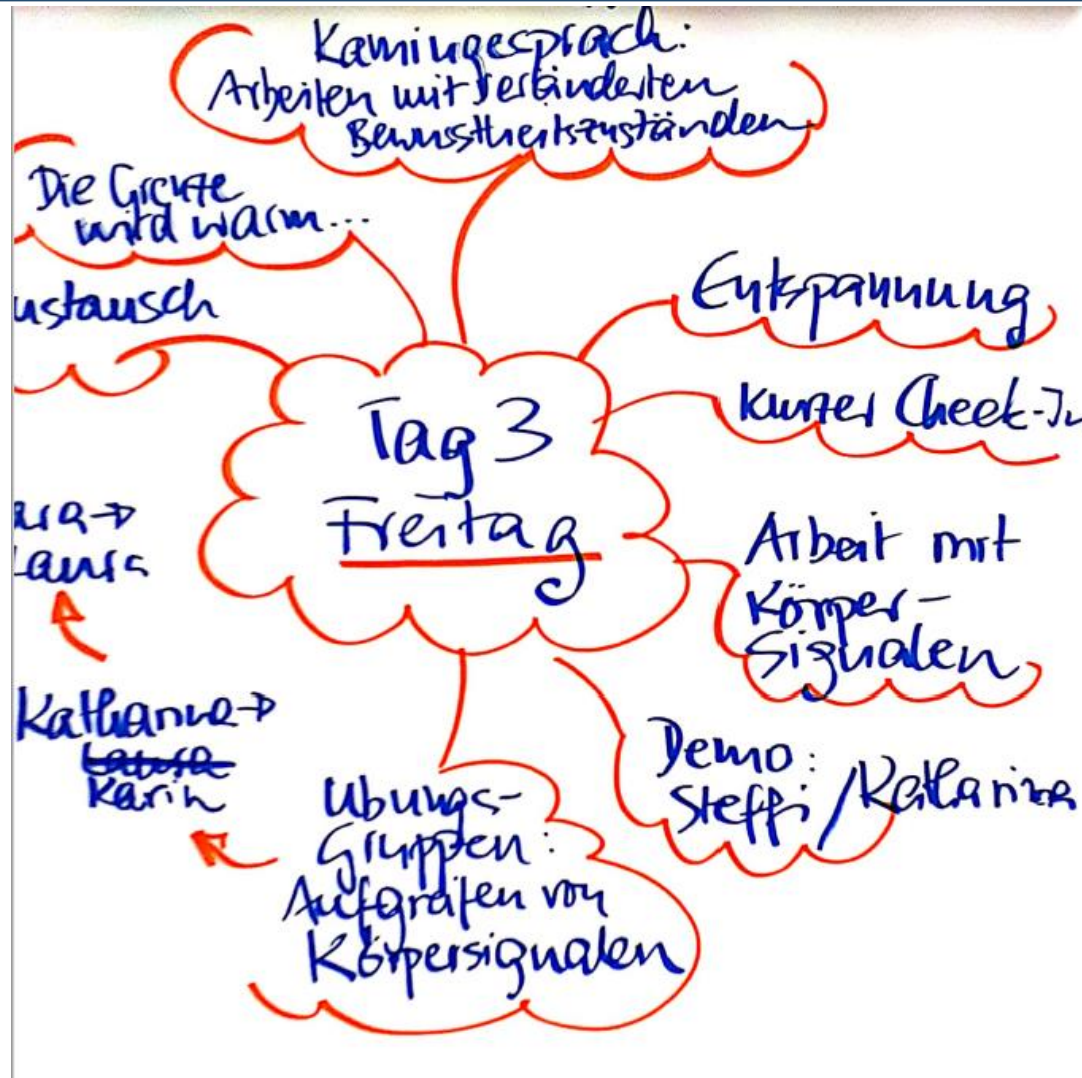 Kamingespräch:
Arbeiten mit veränderten
Bewusstheitszuständen
Die Grenze
wird warm...
ustausch
Tag 3
Freitag
Entspannung
Kurzer Check-In
Arbeit mit
Körper-
Signalen
Demo:
Steffi/Katharina
Übungs-
Gruppen:
Aufgreifen von
Körpersignalen
Katharina→
Laura
Karin
ara→
Laura